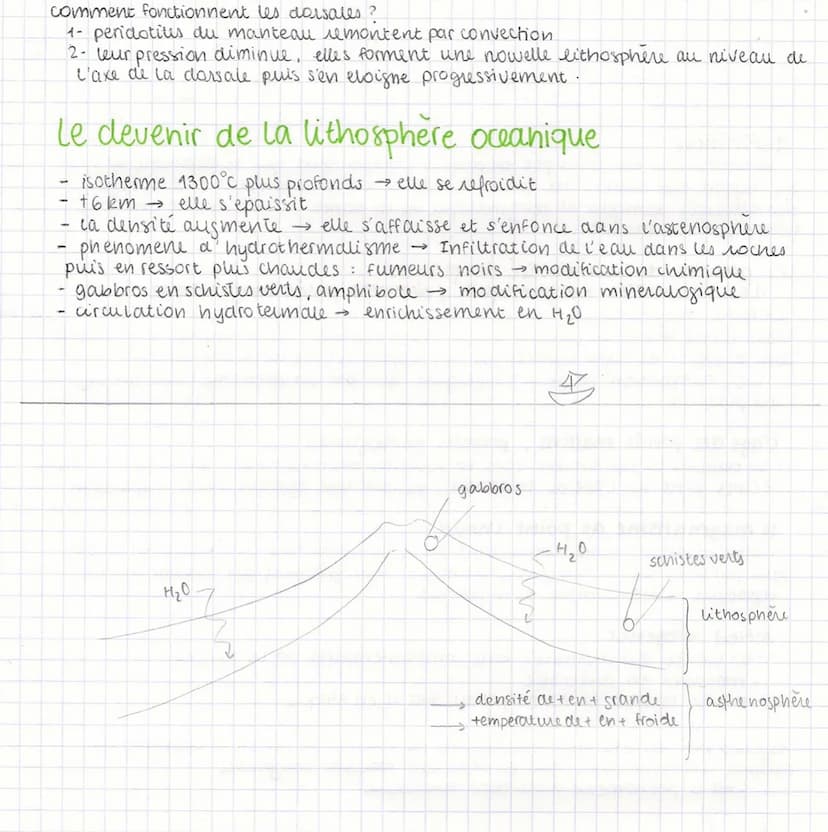 comment fonctionnent les dorsales ?
1- peridotites du manteau remontent par convection
2- leur pression diminue, elles forment une nouvelle lithosphère au niveau de
l'axe de la dorsale puis s'en eloigne progressivement.
Le devenir de la lithosphère oceanique
- isotherme 1300°c plus profonds → elle se refroidit
- +6 km → elle s'épaissit
- la densité augmente → elle s'affaisse et s'enfonce dans l'astenosphère
- phenomene d'hydrothermalisme → Infiltration de l'eau dans les roches
puis en ressort plus chaudes : fumeurs noirs → modification chimique
- gabbros en schistes verts, amphibole → modification mineralogique
- circulation hydrotermale → enrichissement en H₂O
gabbros
H₂O
schistes verts
H₂O
lithosphère
→ densité de + en + grande
asthenosphère
→ temperature de + en + froide